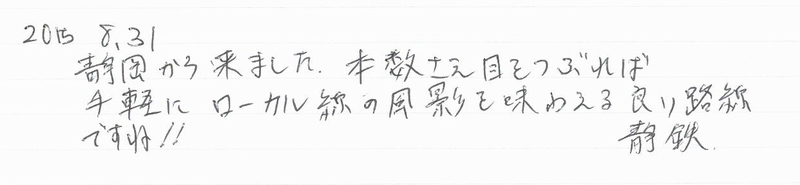 2015 8.31
静岡から来ました. 本数さえ目をつぶれば
手軽に ローカル線の風影を味わえる良い路線
ですね!!
静鉄.